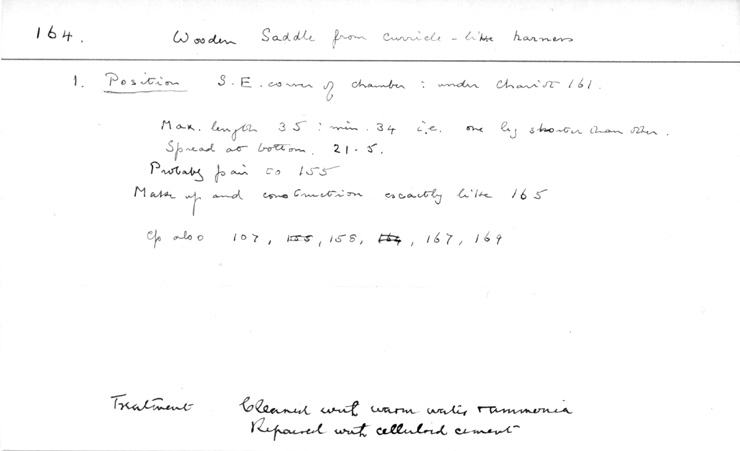 164. Wooden Saddle from curricle-like harness
1. Position S.E. corner of chamber : under chariot 161.
Max. length 35 : min. 34 i.e. one leg shorter than other.
Spread at bottom. 21.5.
Probably pair to 155
Make up and construction exactly like 165
Cp also 107, 155, 158, 164, 167, 169
Treatment Cleaned with warm water + ammonia
Repaired with celluloid cement